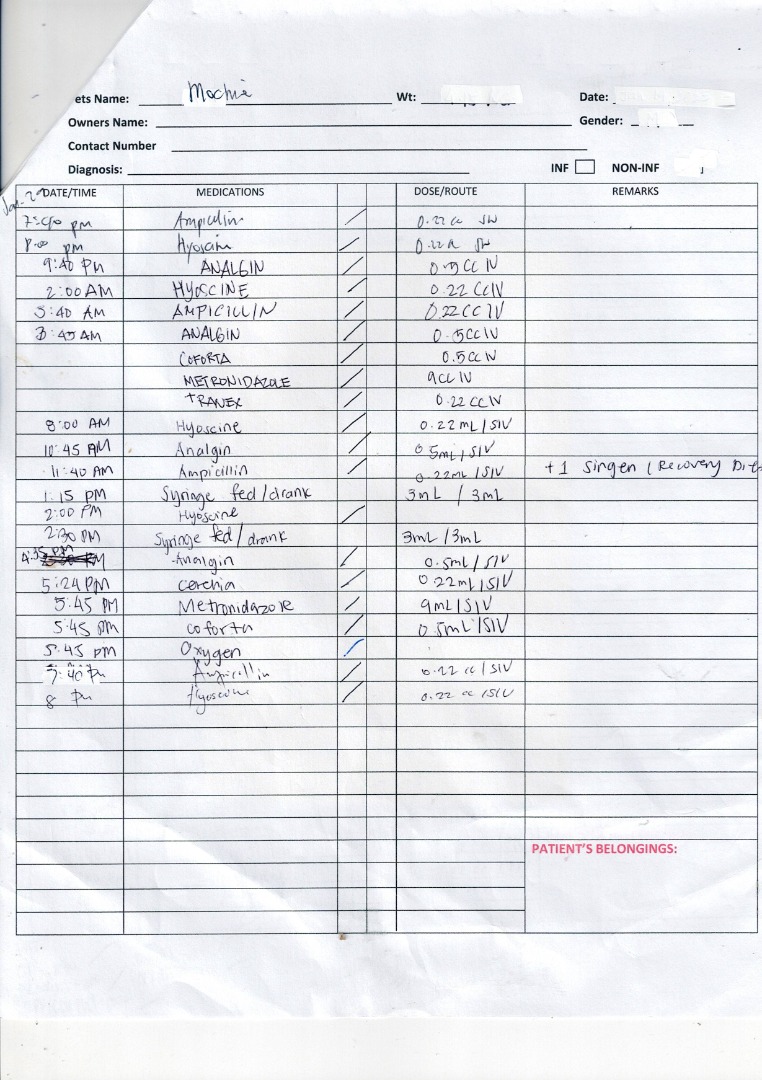 ets Name: Mochie Wt: Date:
Owners Name: Gender:
Contact Number
Diagnosis: INF NON-INF
DATE/TIME MEDICATIONS DOSE/ROUTE REMARKS
pm Ampicillin / 0.22 cc
8:00 pm /
9:40 PM ANALGIN / CC IV
2:00 AM HYOSCINE / 0.22 CC IV
3:40 AM AMPICILLIN / 0.22 CC IV
3:45 AM ANALGIN / 0.5 CC IV
COFORTA / 0.5 CC IV
METRONIDAZOLE / 9 CC IV
+ TRANEX / 0.22 CC IV
8:00 AM Hyoscine / 0.22 mL / SIV
10:45 AM Analgin / 0.5mL / SIV
11:40 AM Ampicillin / 0.22mL / SIV +1 Singen (Recovery
1:15 PM Syringe fed / drank 3mL / 3mL
2:00 PM Hyoscine /
2:30 PM Syringe fed / drank 3mL / 3mL
4:35 PM Analgin / 0.5mL / SIV
5:24 PM cerenia / 0.22mL / SIV
5:45 PM Metronidazole / 9mL / SIV
5:45 pm coforta / 0.5mL / SIV
5:45 pm Oxygen /
7:40 Pm Ampicillin / 0.22 cc / SIV
8 Pm Hyoscine / 0.22 cc / SIV
PATIENT'S BELONGINGS: